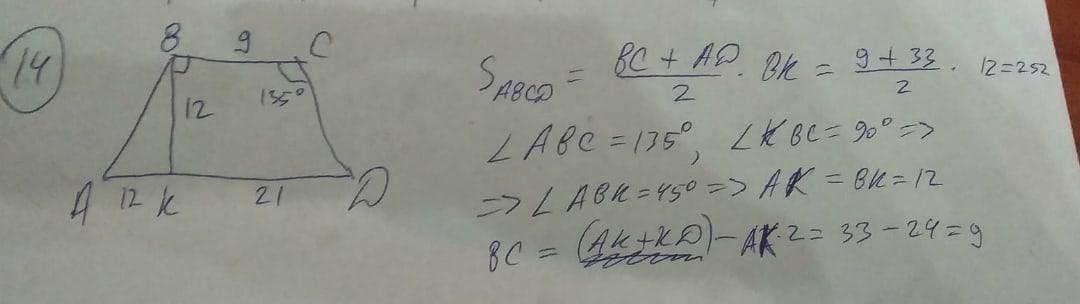 14
B 9 C
12
135°
A 12 K 21 D
S_ABCD = (BC + AD)/2 · BK = (9 + 33)/2 · 12 = 252
∠ABC = 135°, ∠KBC = 90° =>
=> ∠ABK = 45° => AK = BK = 12
BC = (AK + KD) - AK · 2 = 33 - 24 = 9